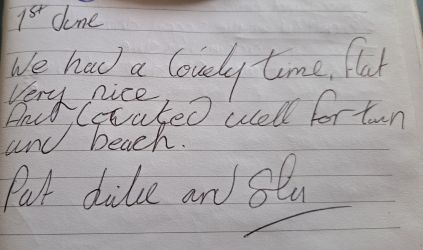 1st June
We had a lovely time, flat
very nice
And located well for town
and beach.
Pat and